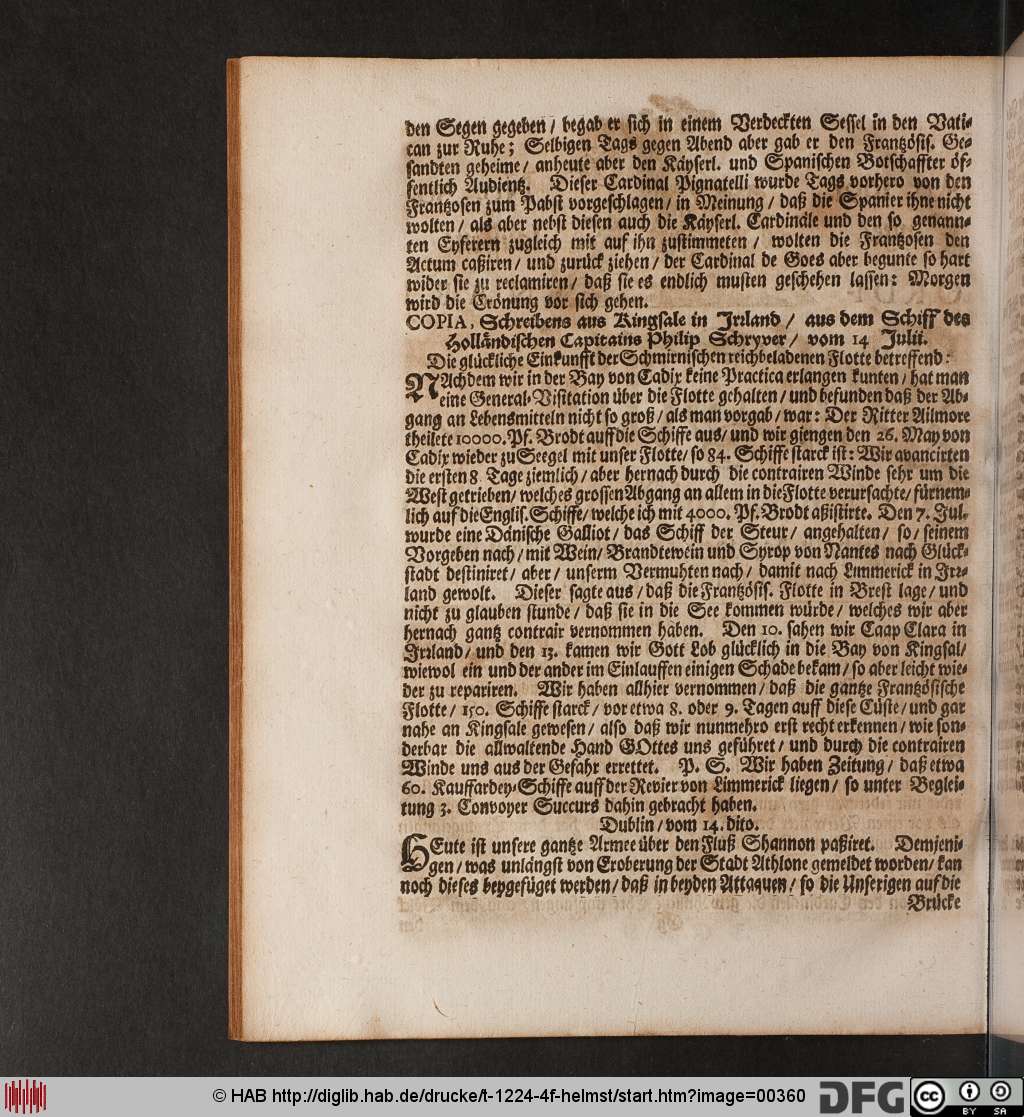 den Segen gegeben / begab er sich in einem Verdeckten Sessel in den Vati-
can zur Ruhe; Selbigen Tags gegen Abend aber gab er den Frantzösis. Ge-
sandten geheime / anheute aber den Käyserl. und Spanischen Botschaffter öf-
fentlich Audientz. Dieser Cardinal Pignatelli wurde Tags vorhero von den
Frantzosen zum Pabst vorgeschlagen / in Meinung / daß die Spanier ihne nicht
wolten / als aber nebst diesen auch die Käyserl. Cardinäle und den so genann-
ten Eyferern zugleich mit auf ihn zustimmeten / wolten die Frantzosen den
Actum caßiren / und zurück ziehen / der Cardinal de Goes aber begunte so hart
wider sie zu reclamiren / daß sie es endlich musten geschehen lassen: Morgen
wird die Crönung vor sich gehen.
COPIA, Schreibens aus Kingsale in Jrrland / aus dem Schiff des
Holländischen Capitains Philip Schryver / vom 14 Julii.
Die glückliche Einkunfft der Schmirnischen reichbeladenen Flotte betreffend:
NAchdem wir in der Bay von Cadix keine Practica erlangen kunten / hat man
eine General-Visitation über die Flotte gehalten / und befunden daß der Ab-
gang an Lebensmitteln nicht so groß / als man vorgab / war: Der Ritter Ailmore
theilete 10000. Pf. Brodt auff die Schiffe aus / und wir giengen den 26. May von
Cadix wieder zu Seegel mit unser Flotte / so 84. Schiffe starck ist: Wir avancirten
die ersten 8 Tage ziemlich / aber hernach durch die contrairen Winde sehr um die
West getrieben / welches grossen Abgang an allem in die Flotte verursachte / fürnem-
lich auf die Englis. Schiffe / welche ich mit 4000. Pf. Brodt aßistirte. Den 7. Jul.
wurde eine Dänische Galliot / das Schiff der Steur / angehalten / so / seinem
Vorgeben nach / mit Wein / Brandtewein und Syrop von Nantes nach Glück-
stadt destiniret / aber / unserm Vermuhten nach / damit nach Limmerick in Jrr-
land gewolt. Dieser sagte aus / daß die Frantzösis. Flotte in Brest lage / und
nicht zu glauben stunde / daß sie in die See kommen würde / welches wir aber
hernach gantz contrair vernommen haben. Den 10. sahen wir Caap Clara in
Jrrland / und den 13. kamen wir Gott Lob glücklich in die Bay von Kingsal /
wiewol ein und der ander im Einlauffen einigen Schade bekam / so aber leicht wie-
der zu repariren. Wir haben allhier vernommen / daß die gantze Frantzösische
Flotte / 150. Schiffe starck / vor etwa 8. oder 9. Tagen auff diese Cüste / und gar
nahe an Kingsale gewesen / also daß wir nunmehro erst recht erkennen / wie son-
derbar die allwaltende Hand GOttes uns geführet / und durch die contrairen
Winde uns aus der Gefahr errettet. P. S. Wir haben Zeitung / daß etwa
60. Kauffardey-Schiffe auff der Revier von Limmerick liegen / so unter Beglei-
tung 3. Convoyer Succurs dahin gebracht haben.
Dublin / vom 14. dito.
HEute ist unsere gantze Armee über den Fluß Shannon paßiret. Demjeni-
gen / was unlängst von Eroberung der Stadt Athlone gemeldet worden / kan
noch dieses beygefüget werden / daß in beyden Attaquen / so die Unserigen auf die
Brücke
© HAB http://diglib.hab.de/drucke/t-1224-4f-helmst/start.htm?image=00360
DFG
cc
BY SA